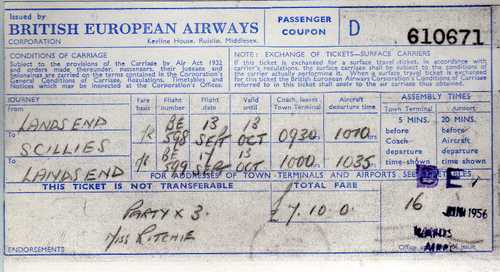 Issued by
BRITISH EUROPEAN AIRWAYS
CORPORATION Keyline House, Ruislip, Middlesex.
PASSENGER
COUPON
D
610671
CONDITIONS OF CARRIAGE
Subject to the provisions of the Carriage by Air Act 1932
and orders made thereunder, passengers, their luggage and
belongings are carried on the terms contained in the Corporation's
General Conditions of Carriage, Regulations, Timetables and
Notices which may be inspected at the Corporation's Offices.
NOTE: EXCHANGE OF TICKETS—SURFACE CARRIERS
If this ticket is exchanged for a surface travel ticket, in accordance with
carrier's regulations, the surface carriage shall be subject to the conditions of
the carrier actually performing it. When a surface travel ticket is exchanged
for this ticket the British European Airways Corporation's Conditions of Carriage
referred to in this ticket shall apply to the air carriage thus obtained.
JOURNEY
Fare basis Flight number Flight date Valid until Coach leaves Town Terminal Aircraft departure time
ASSEMBLY TIMES
Town Terminal Airport
5 MINS. 20 MINS.
before before
Coach Aircraft
departure departure
time shown time shown
From
LANDSEND BE 598 13 SEPT 13 OCT 0930 1010
To
SCILLIES
BE 599 13 OCT 1000 1035
To
LANDSEND
FOR ADDRESSES OF TOWN TERMINALS AND AIRPORTS SEE
THIS TICKET IS NOT TRANSFERABLE
TOTAL FARE
BE
PARTY X 3.
MISS RITCHIE
£7.10.0
16 JUN 1956
ENDORSEMENTS